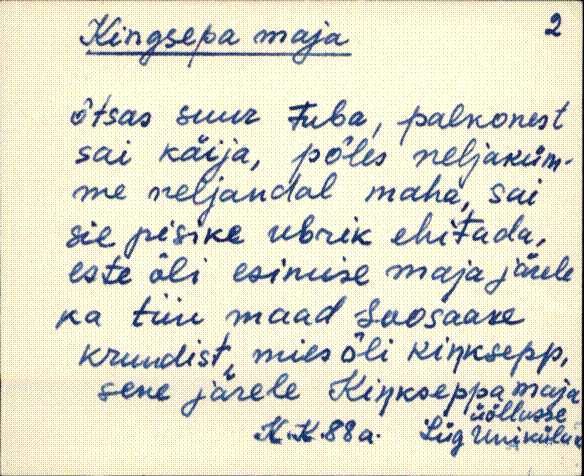 2
Kingsepa maja
õtsas suur tuba, palkonest
sai käija, põles neljaküm-
me neljandal maha, sai
sie pisike ubrik ehitada,
este õli esimise maja järele
ka tiiu maad Soosaare
krundist, mies õli kiŋksepp,
sene järele Kiŋkseppa maja
üöllusse
K.K. 88 a. Lüg Uniküla